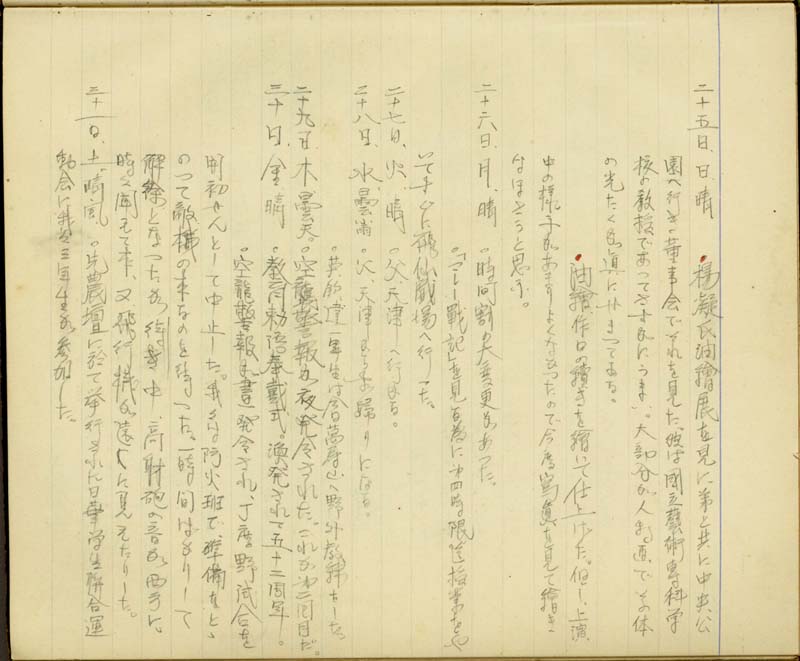 二十五日、日、晴　●楊凝氏油繪展を見に弟と共に中央公
園へ行き董事会でそれを見た。彼は國立藝術専科学
校の教授であってさすがにうまい。大部分が人物画で、その体
の光たくが真にせまってゐる。
●油繪、作日の續きを繪いて仕上げた。但し、上演
中の様子があまりよくなかったので今度寫眞を見て繪き
なほさうと思ふ。
二十六日、月、晴　○時間割の大変更があった。
○「マレー戦記」を見る為に四時限迄授業をや
いて
劇場へ行った。
二十七日、火、晴　○父天津へ行かる。
二十八日、水、曇　○父、天津よりお帰りになる。
○一年生は萬寿山へ野外教練をした。
二十九日、木、曇天。○空襲警報が夜発令された。これが第二回目だ。
三十日、金、晴　○教育勅語奉戴式。渙発されて五十二周年。
○空襲警報が書発令され、丁度野試合を
開初せんとして中止した。我々は防火班で、準備をとゝ
のって敵機の来るのを待った。一時間ばかりして
解除となったが待ち中、高射砲の音が西方に
時々聞えて来、又飛行機が遠くに見えたりした。
三十一日、土、晴、風　○先農壇に於て挙行された日華学生聯合運
動会に我々三年生が参加した。